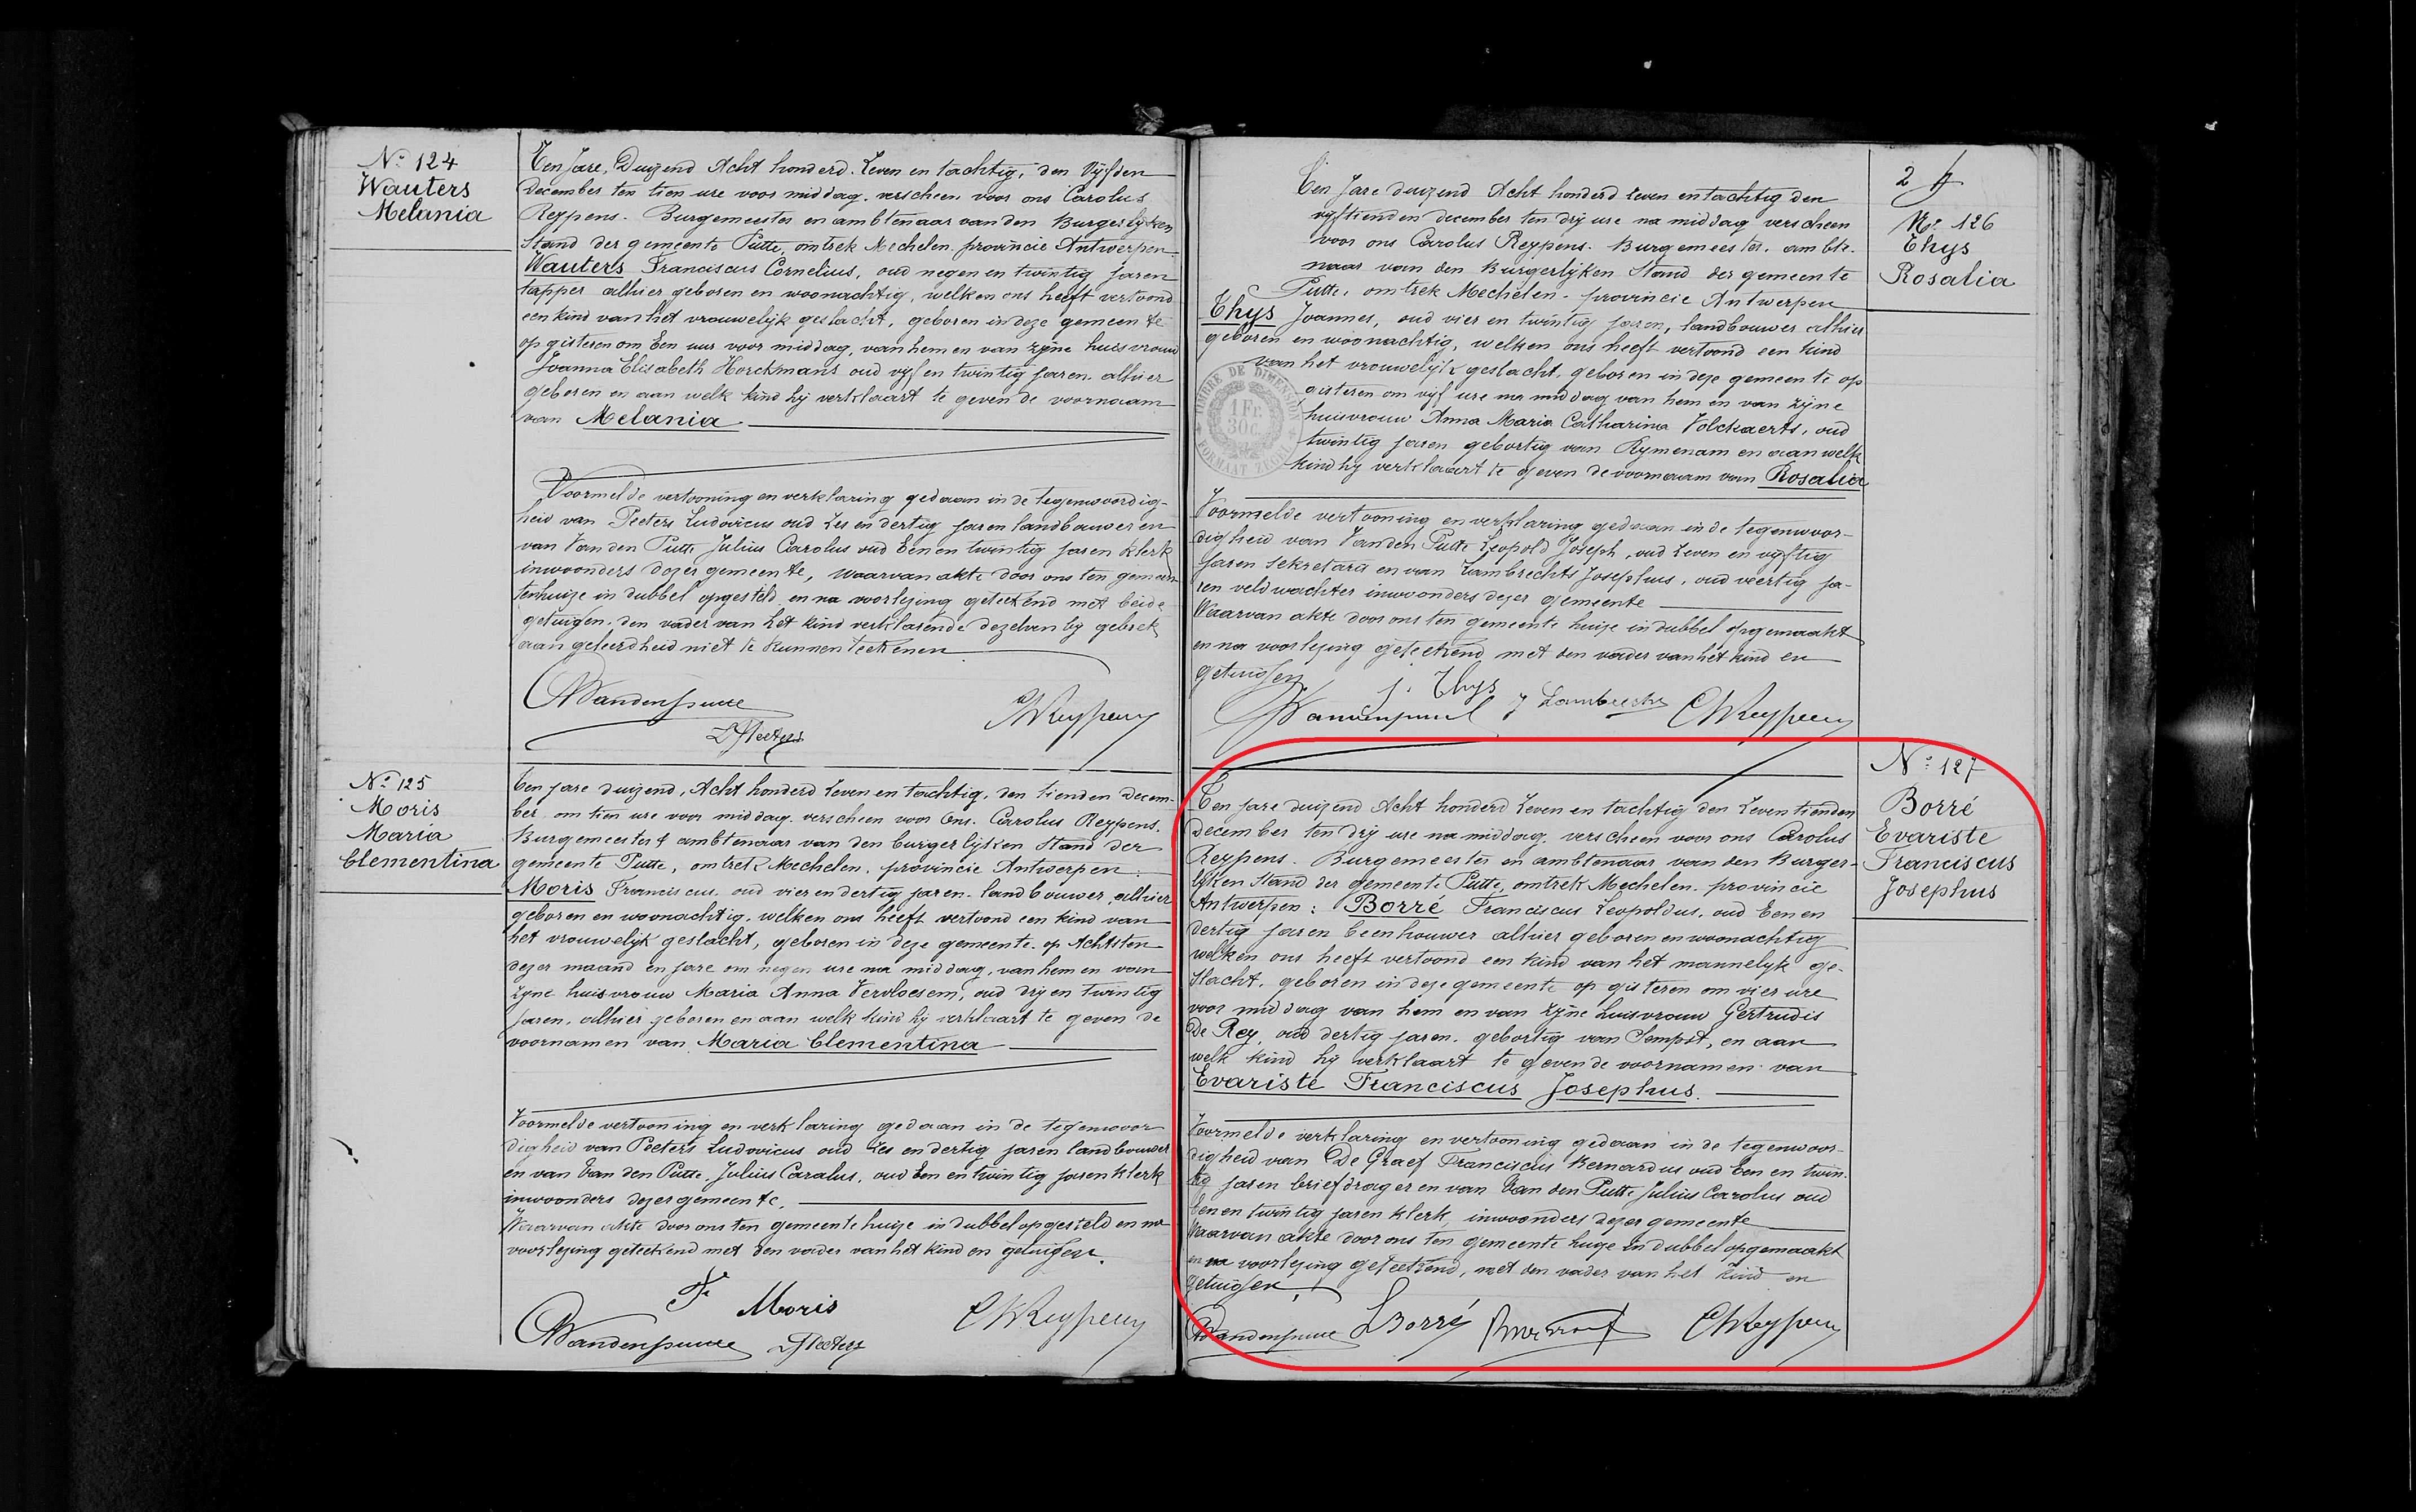 No 124
Wauters
Melania
Ten Jare, Duizend Acht honderd Zeven en tachtig, den Vijfden
december ten tien ure voor middag, verscheen voor ons Carolus
Reypens. Burgemeester en ambtenaar van den Burgerlijken
Stand der gemeente Putte, omtrek Mechelen, provincie Antwerpen.
Wauters Franciscus Cornelius, oud negen en twintig jaren
tapper alhier geboren en woonachtig, welken ons heeft vertoond
een kind van het vrouwelijk geslacht, geboren in deze gemeente
op gisteren om Een uur voor middag, van hem en van zijne huisvrouw
Joanna Elisabeth Horckmans oud vijf en twintig jaren, alhier
geboren en aan welk kind hij verklaart te geven de voornaam
van Melania
Voormelde vertooning en verklaring gedaan in de tegenwoordig-
heid van Peeters Ludovicus oud Zes en dertig jaren landbouwer en
van Van den Putte Julius Carolus oud Een en twintig jaren klerk
inwoonders dezer gemeente, waarvan akte door ons ten gemeen-
tenhuize in dubbel opgesteld en na voorlezing geteekend met beide
getuigen, den vader van het kind verklarende dezelven bij gebrek
aan geleerdheid niet te kunnen teekenen
L Peeters
CReypens
No 125
Moris
Maria
Clementina
Ten jare duizend, Acht honderd Zeven en tachtig, den tienden decem-
ber, om tien ure voor middag verscheen voor Ons. Carolus Reypens.
Burgemeester & ambtenaar van den burgerlijken Stand der
gemeente Putte, omtrek Mechelen, provincie Antwerpen:
Moris Franciscus, oud vier en dertig jaren, landbouwer, alhier
geboren en woonachtig, welken ons heeft vertoond een kind van
het vrouwelijk geslacht, geboren in deze gemeente, op Achtsten
dezer maand en jare om negen ure na middag, van hem en van
zijne huisvrouw Maria Anna Vervloesem, oud drij en twintig
jaren, alhier geboren en aan welk kind hij verklaart te geven de
voornamen van Maria Clementina
Voormelde vertooning en verklaring gedaan in de tegenwoor
digheid van Peeters Ludovicus oud Zes en dertig jaren landbouwer
en van Van den Putte, Julius Carolus, oud Een en twintig jaren klerk
inwoonders dezer gemeente,
Waarvan akte door ons ten gemeentehuize in dubbel opgesteld en na
voorlezing geteekend met den vader van het kind en getuigen.
F. Moris
CReypens
L Peeters
2
No 126
Thys
Rosalia
Ten Jare duizend Acht honderd zeven en tachtig den
vijftienden december ten drij ure na middag verscheen
voor ons Carolus Reypens. Burgemeester, ambte-
naar van den Burgerlijken Stand der gemeente
Putte, omtrek Mechelen, provincie Antwerpen
Thys Joannes, oud vier en twintig jaren, landbouwer alhier
geboren en woonachtig, welken ons heeft vertoond een kind
van het vrouwelijk geslacht, geboren in deze gemeente op
gisteren om vijf ure na middag van hem en van zijne
huisvrouw Anna Maria Catharina Volckaerts, oud
twintig jaren gebortig van Rymenam en aan welk
kind hij verklaart te geven de voornaam van Rosalia
TIMBRE DE DIMENSION
1 Fr.
30 c.
FORMAAT ZEGEL
Voormelde vertooning en verklaring gedaan in de tegenwoor-
digheid van Van den Putte Leopold Joseph, oud Zeven en vijftig
jaren Sekretaris en van Lambrechts Josephus, oud veertig ja-
ren veldwachter inwoonders dezer gemeente
Waarvan akte door ons ten gemeente huize in dubbel opgemaakt
en na voorlezing geteekend met den vader van het kind en
getuigen
J. Thys
J Lambrechts
CReypens
No 127
Borré
Evariste
Franciscus
Josephus
Ten jare duizend Acht honderd Zeven en tachtig den Zeventienden
december ten drij ure na middag, verscheen voor ons Carolus
Reypens. Burgemeester en ambtenaar van den Burger-
lijken Stand der gemeente Putte, omtrek Mechelen, provincie
Antwerpen: Borré Franciscus Leopoldus, oud Een en
dertig jaren beenhouwer alhier geboren en woonachtig
welken ons heeft vertoond een kind van het mannelijk ge-
slacht, geboren in deze gemeente op gisteren om vier ure
voor middag van hem en van zijne huisvrouw Gertrudis
De Rey, oud dertig jaren, gebortig van Sempst, en aan
welk kind hij verklaart te geven de voornamen van
Evariste Franciscus Josephus.
Voormelde verklaring en vertooning gedaan in de tegenwoor-
digheid van De Graef Franciscus Bernardus oud Een en twin-
tig jaren briefdrager en van Van den Putte Julius Carolus oud
Een en twintig jaren klerk, inwoonders dezer gemeente
Waarvan akte door ons ten gemeente huize in dubbel opgemaakt
en na voorlezing geteekend, met den vader van het kind en
getuigen.
LBorré
CReypens